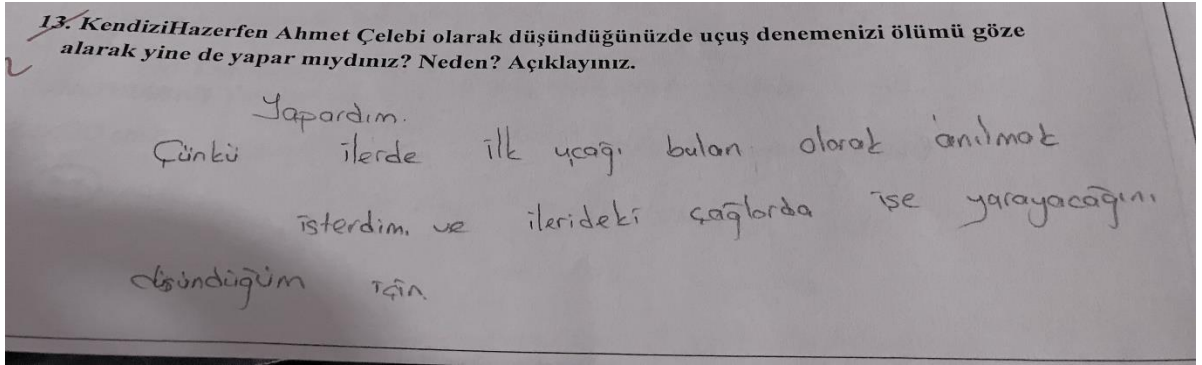 13. KendiziHazerfen Ahmet Çelebi olarak düşündüğünüzde uçuş denemenizi ölümü göze
alarak yine de yapar mıydınız? Neden? Açıklayınız.
Yapardım.
Çünkü ilerde ilk uçağı bulan olarak anılmak
isterdim. ve ilerideki çağlarda işe yarayacağını
düşündüğüm için.